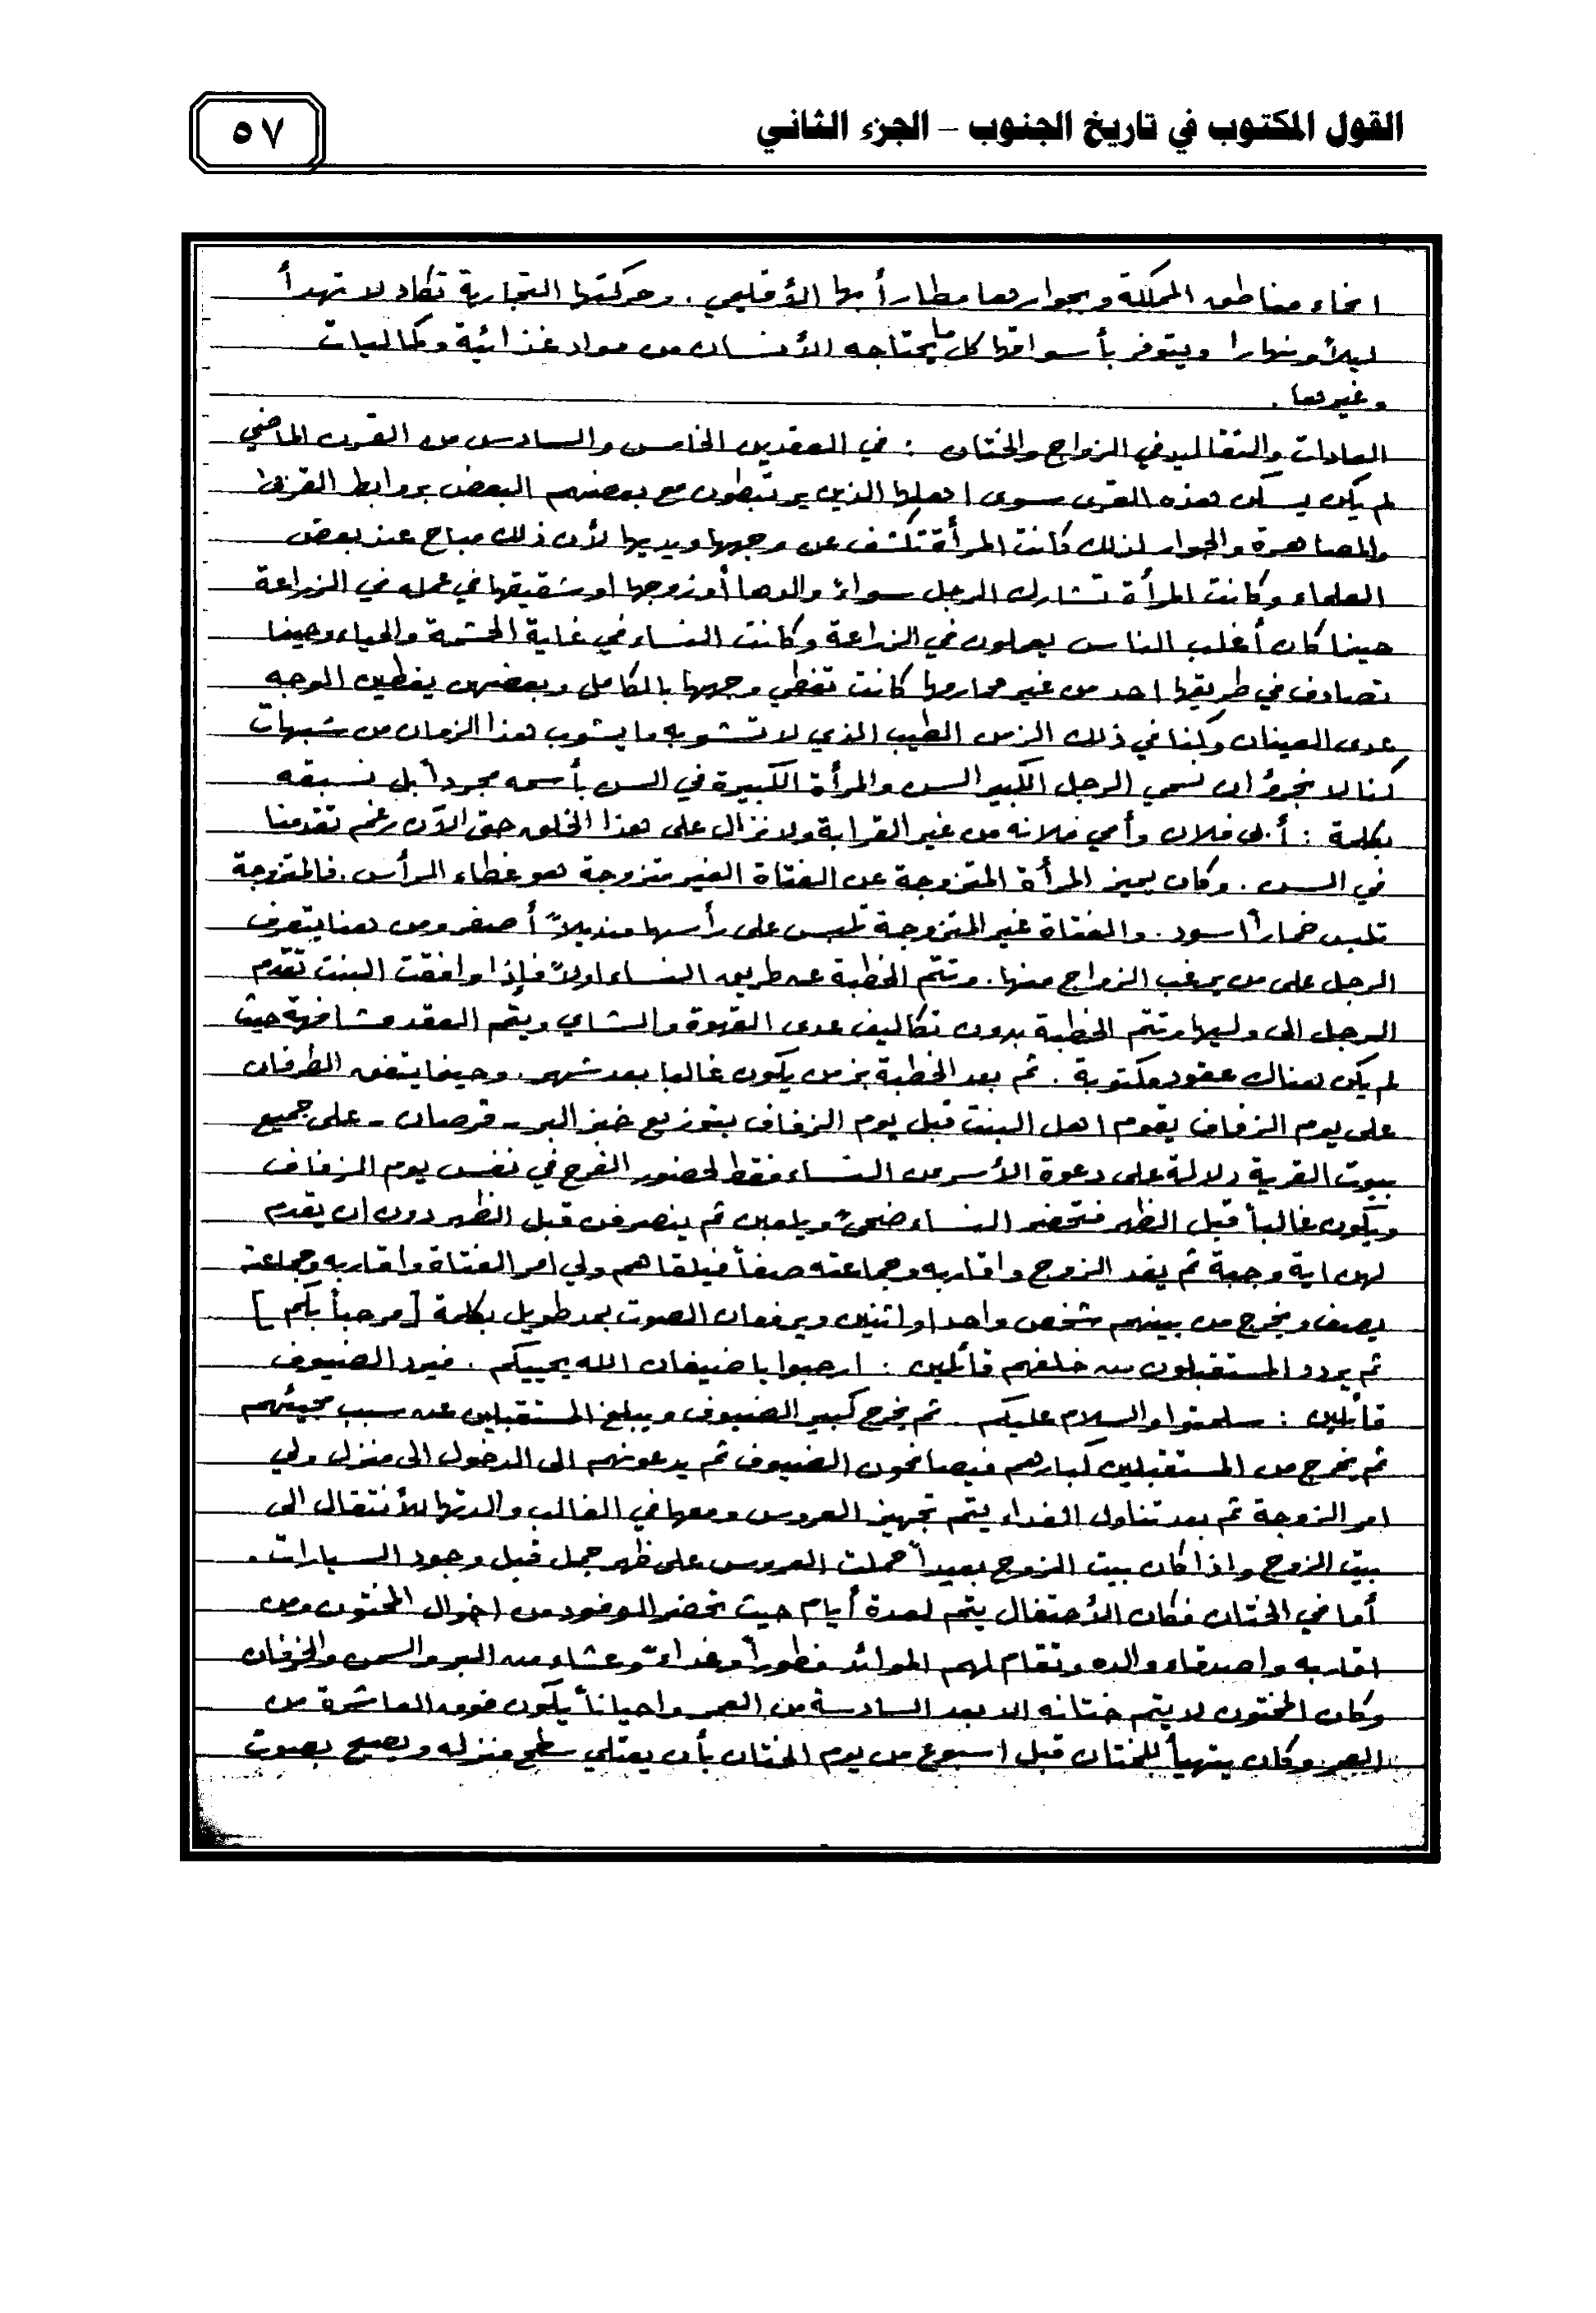 القول المكتوب في تاريخ الجنوب – الجزء الثاني
٥٧
انحاء مناطق المملكة وبجوارها مطار أبها الأقليمي . وحركتها التجارية تكاد لا تهدأ
ليلاً ونهارا ويتوفر بأسواقها كل ما يحتاجه الأنسان من مواد غذائية وكماليات
وغيرها .
العادات والتقاليد في الزواج والختان : في العقدين الخامس والسادس من القرن الماضي
لم يكن يسكن هذه القرى سوى اهلها الذين يرتبطون مع بعضهم البعض بروابط القربى
والمصاهرة والجوار لذلك كانت المرأة تكشف عن وجهها ويديها لأن ذلك مباح عند بعض
العلماء وكانت المرأة تشارك الرجل سواءً والدها أو زوجها او شقيقها في عمله في الزراعة
حينما كان أغلب الناس يعملون في الزراعة وكانت النساء في غاية الحشمة والحياء وحينما
تصادف في طريقها احد من غير محارمها كانت تغطي وجهها بالكامل وبعضهن يغطين الوجه
عدى العينان وكنا في ذلك الزمن الطيب الذي لا تشوبه ما يشوب هذا الزمان من شبهات
كنا لا نجرؤ ان نسمي الرجل الكبير السن والمرأة الكبيرة في السن بأسمه مجرداً بل نسبقه
بكلمة : أبي فلان وأمي فلانه من غير القرابة ولا نزال على هذا الخلق حتى الآن رغم تقدمنا
في السن . وكان يميز المرأة المتزوجة عن الفتاة الغير متزوجة هو غطاء الرأس . فالمتزوجة
تلبس خماراً أسود . والفتاة غير المتزوجة تلبس على رأسها منديلاً أصفر ومن هنا يتعرف
الرجل على من يرغب الزواج منها . وتتم الخطبة عن طريق النساء اولاً فإذا وافقت البنت تقدم
الرجل الى وليها وتتم الخطبة بدون تكاليف عدى القهوة والشاي ويتم العقد مشافهة حيث
لم يكن هناك عقود مكتوبة . ثم بعد الخطبة بزمن يكون غالبا بعد شهر . وحينما يتفق الطرفان
على يوم الزفاف يقوم اهل البنت قبل يوم الزفاف بتوزيع خبز البر - قرصان - على جميع
بيوت القرية دلالة على دعوة الأسر من النساء فقط لحضور الفرح في نفس يوم الزفاف
ويكون غالباً قبل الظهر فتحضر النساء ضحىً ويلعبن ثم ينصرفن قبل الظهر دون ان يقدم
لهن اية وجبة ثم يفد الزوج واقاربه وجماعته صفاً فيلقاهم ولي امر الفتاة واقاربه وجماعته
بصف ويخرج من بينهم شخص واحد او اثنين ويرفعان الصوت بمد طويل بكلمة [ مرحباً بكم ]
ثم يردد المستقبلون من خلفهم قائلين : ارحبوا يا ضيفان الله يحييكم . فيرد الضيوف
قائلين : سلمتوا والسلام عليكم . ثم يخرج كبير الضيوف ويبلغ المستقبلين عن سبب مجيئهم
ثم يخرج من المستقبلين كبارهم فيصافحون الضيوف ثم يدعونهم الى الدخول الى منزل ولي
امر الزوجة ثم بعد تناول الغداء يتم تجهيز العروس ومعها في الغالب والدتها للأنتقال الى
بيت الزوج واذا كان بيت الزوج بعيداً حملت العروس على ظهر جمل قبل وجود السيارات .
أما في الختان فكان الأحتفال يتم لعدة أيام حيث تحضر الوفود من اخوال المختون ومن
اقاربه واصدقاء والده وتقام لهم الموائد فطوراً وغداءً وعشاء من البر والسمن والخرفان
وكان المختون لا يتم ختانه الا بعد السادسة من العمر واحياناً يكون فوق العاشرة من
العمر وكان يتهيأ للختان قبل اسبوع من يوم الختان بأن يعتلي سطح منزله ويصيح بصوت